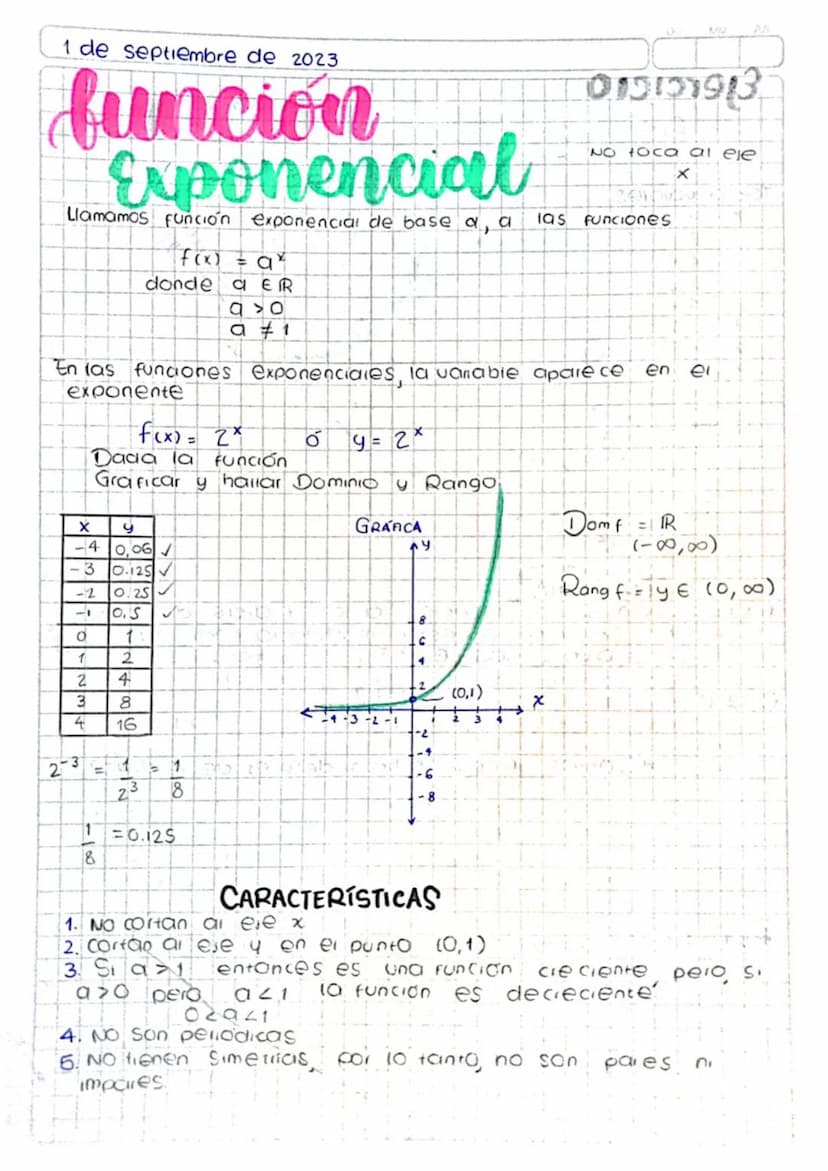 1 de septiembre de 2023
función
Exponencial
No toca al eje
x
Llamamos función exponencial de base a, a las funciones
f(x) = aˣ
donde a ∈ ℝ
a > 0
a ≠ 1
En las funciones exponenciales, la variable aparece en el
exponente
f(x) = 2ˣ ó y = 2ˣ
Dada la función
Graficar y hallar Dominio y Rango
x y
-4 0,06 ✓
-3 0.125 ✓
-2 0.25 ✓
-1 0.5 ✓
0 1
1 2
2 4
3 8
4 16
GRÁFICA
y
8
6
4
2
(0,1)
x
-4 -3 -2 -1 1 2 3 4
-2
-4
-6
-8
Dom f = ℝ
(-∞,∞)
Rang f = y ∈ (0, ∞)
2⁻³ = 1/2³ = 1/8
1/8 = 0.125
CARACTERÍSTICAS
1. No cortan al eje x
2. cortan al eje y en el punto (0,1)
3. Si a > 1 entonces es una función creciente pero, si
a > 0 pero a < 1 la función es decreciente
0 < a < 1
4. No son periódicas
5. No tienen simetrías, por lo tanto, no son pares ni
impares.